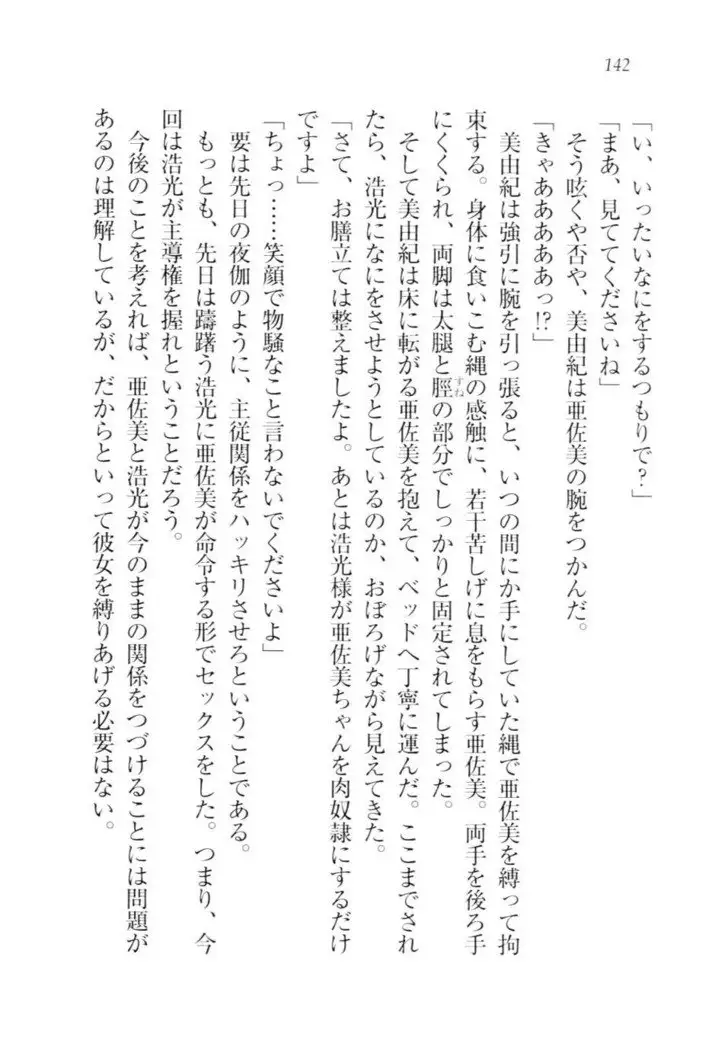 142
「い、いったいなにをするつもりで？」
「まあ、見ててくださいね」
　そう呟くや否や、美由紀は亜佐美の腕をつかんだ。
「きゃああああぁっ!?」
　美由紀は強引に腕を引っ張ると、いつの間にか手にしていた縄で亜佐美を縛って拘
束する。身体に食いこむ縄の感触に、若干苦しげに息をもらす亜佐美。両手を後ろ手
にくくられ、両脚は太腿と脛の部分でしっかりと固定されてしまった。
すね
　そして美由紀は床に転がる亜佐美を抱えて、ベッドへ丁寧に運んだ。ここまでされ
たら、浩光になにをさせようとしているのか、おぼろげながら見えてきた。
「さて、お膳立ては整えましたよ。あとは浩光様が亜佐美ちゃんを肉奴隷にするだけ
ですよ」
「ちょっ……笑顔で物騒なこと言わないでくださいよ」
　要は先日の夜伽のように、主従関係をハッキリさせろということである。
　もっとも、先日は躊躇う浩光に亜佐美が命令する形でセックスをした。つまり、今
回は浩光が主導権を握れということだろう。
　今後のことを考えれば、亜佐美と浩光が今のままの関係をつづけることには問題が
あるのは理解しているが、だからといって彼女を縛りあげる必要はない。